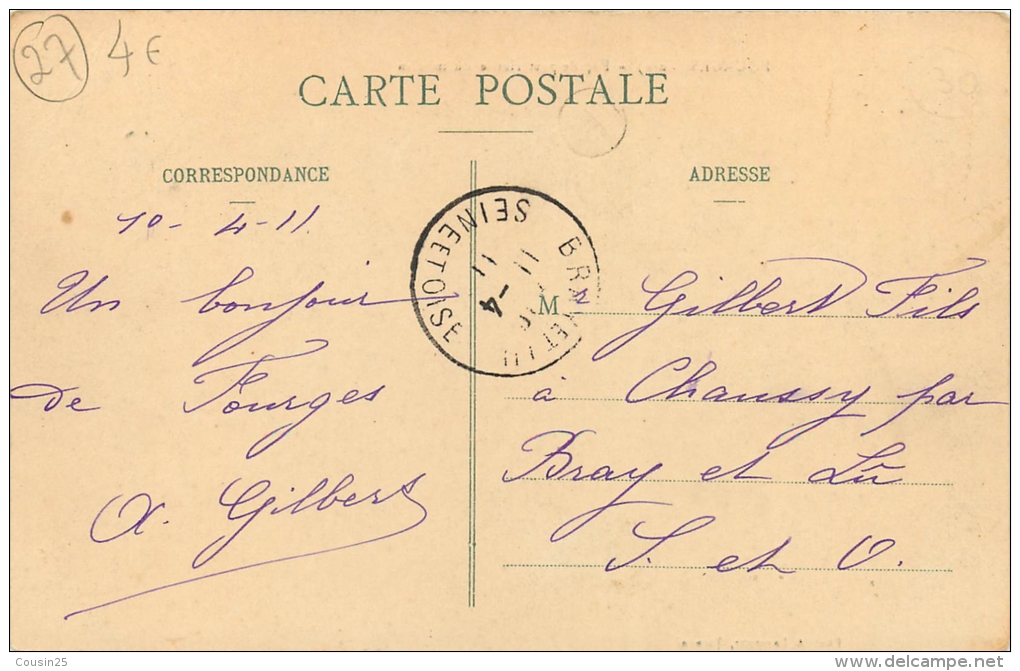 27
4 €
CARTE POSTALE
CORRESPONDANCE
10-4-11
Un bonjour
de Fourges
A. Gilbert
ADRESSE
Mr Gilbert Fils
à Chaussy par
Bray et Lû
S. et O.
BRAY ET LU
SEINE ET OISE
11 -4
11
Cousin25
www.delcampe.net